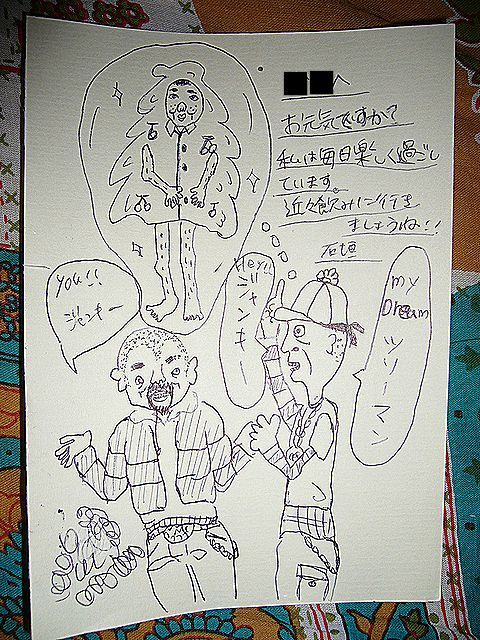 へ
お元気ですか?
私は毎日楽しく過ごし
ています。
近々飲みに行き
ましょうね!!
石垣
Hey!!
ジャンキー
my
Dream
ツリーマン
you!!
ジャンキー